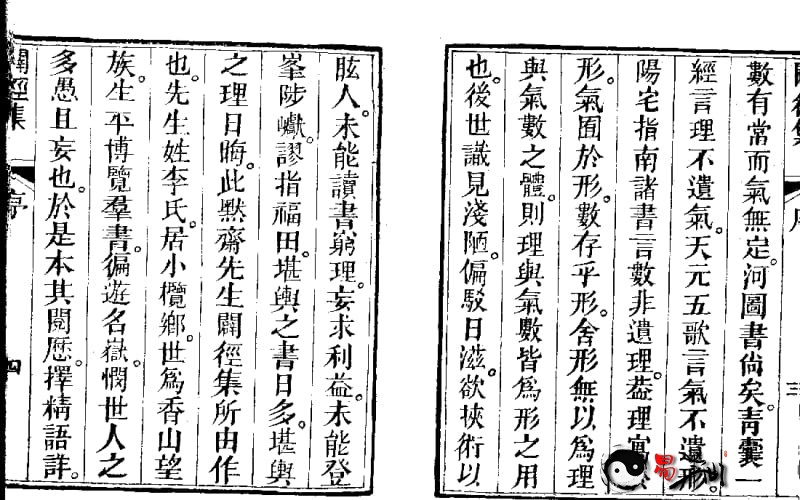 數有常而氣無定。河圖書尚矣。青囊一
經言理不遺氣。天元五歌言氣不遺
陽宅指南諸書言數非遺理。蓋理寓
形。氣囿於形。數存乎形。舍形無以爲理
與氣數之體。則理與氣數皆爲形之用
也。後世識見淺陋。偏駁日滋。欲挾術以
眩人。未能讀書窮理。妄求利益。未能登
峯陟巘。謬指福田。堪輿之書日多。堪輿
之理日晦。此默齋先生闢徑集所由作
也。先生姓李氏。居小欖鄉。世爲香山望
族。生平博覽羣書。徧遊名嶽。憫世人之
多愚且妄也。於是本其閱歷。擇精語詳。
闢徑集
序
四
易